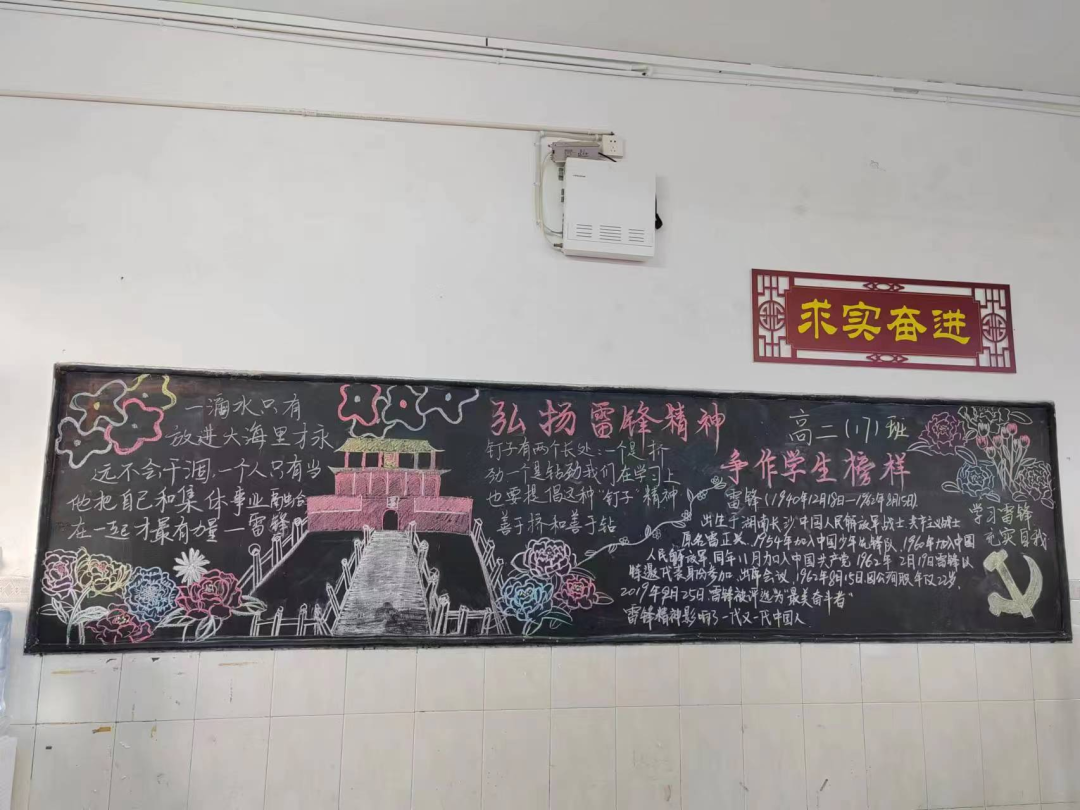 求实奋进
一滴水只有
放进大海里才永
远不会干涸，一个人只有当
他把自己和集体事业融合
在一起才最有力量一雷锋
弘扬雷锋精神
钉子有两个长处：一个是挤
劲一个是钻劲我们在学习上
也要提倡这种"钉子"精神，
善于挤和善于钻
高二(17)班
争作学生榜样
雷锋(1940年12月18日—1962年8月15日)
出生于湖南长沙中国人民解放军战士共产主义战士
原名雷正兴，1954年加入中国少年先锋队，1960年加入中国
人民解放军，同年11月加入中国共产党，1962年2月19日雷锋以
特邀代表身份参加
会议，1962年8月15日因公殉职年仅22岁，
2019年9月25日雷锋被评选为"最美奋斗者"
雷锋精神影响了一代又一代中国人
学习雷锋
充实自我